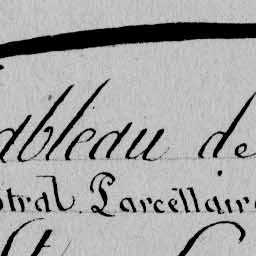 ableau de
stral Parcellaire